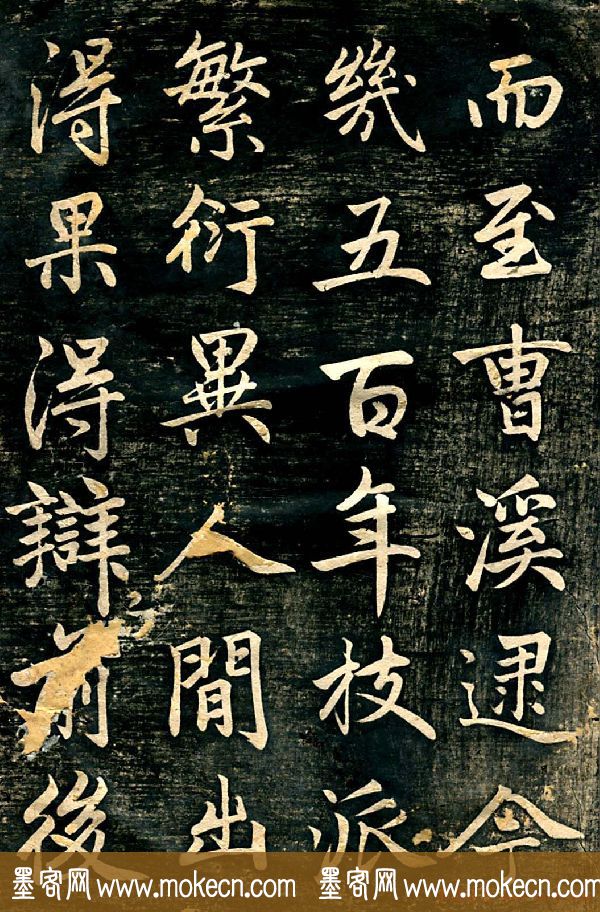 而至曹溪逮今
幾五百年枝派
繁衍異人間出
得果得辯前後
墨客网 www.mokecn.com 墨客网 www.mokecn.com